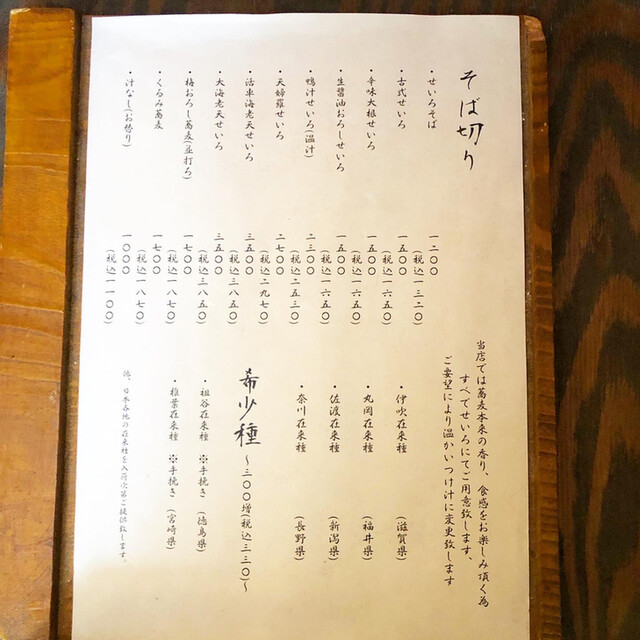 そば切り
・せいろそば 一二〇〇
(税込一三二〇)
・古式せいろ 一五〇〇
(税込一六五〇)
・辛味大根せいろ 一五〇〇
(税込一六五〇)
・生醤油おろしせいろ 一五〇〇
(税込一六五〇)
・鴨汁せいろ(温汁) 二三〇〇
(税込二五三〇)
・天婦羅せいろ 二七〇〇
(税込二九七〇)
・活車海老天せいろ 三五〇〇
(税込三八五〇)
・大海老天せいろ 三五〇〇
(税込三八五〇)
・梅おろし蕎麦(並打ろ) 一七〇〇
(税込一八七〇)
・くるみ蕎麦 一七〇〇
(税込一八七〇)
・汁なし(お替り) 一〇〇〇
(税込一一〇〇)
当店では蕎麦本来の香り、食感をお楽しみ頂く為
すべてせいろにてご用意致します、
ご要望により温かいつけ汁に変更致します
・伊吹在来種 (滋賀県)
・丸岡在来種 (福井県)
・佐渡在来種 (新潟県)
・奈川在来種 (長野県)
希少種 〜三〇〇増(税込三三〇)〜
・祖谷在来種 ※手挽き (徳島県)
・椎葉在来種 ※手挽き (宮崎県)
他、日本各地の在来種を入荷次第ご提供致します。